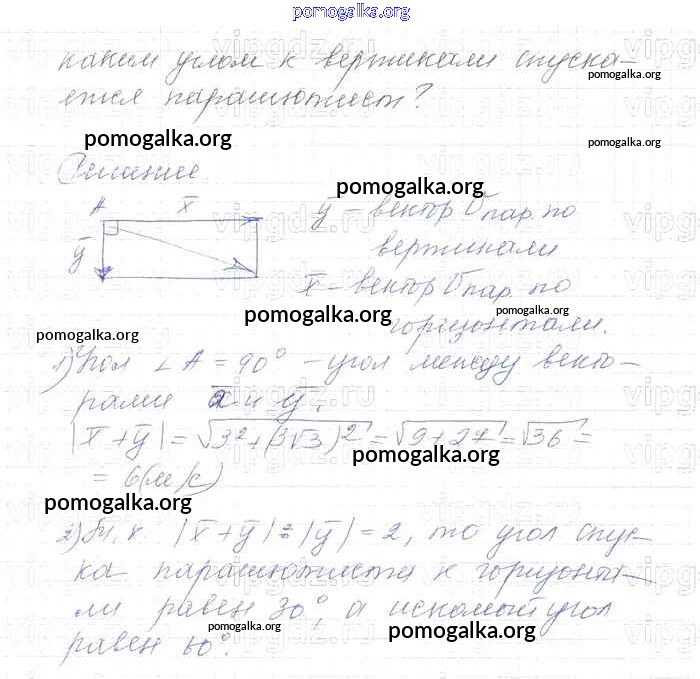 pomogalka.org
каким углом к вертикали спуска-
ется парашютист?
pomogalka.org
pomogalka.org
pomogalka.org
Решение.
pomogalka.org
A x̅ y̅ – вектор V пар. по
y̅ вертикали
x̅ – вектор V пар. по
pomogalka.org
pomogalka.org
pomogalka.org
горизонтали.
1) Угол ∠A = 90° – угол между векто-
рами x̅ и y̅.
|x̅ + y̅| = √3² + (3√3)² = √9 + 27 = √36 =
pomogalka.org
= 6 (м/с)
pomogalka.org
2) т. к. |x̅ + y̅| : |y̅| = 2, то угол спус-
ка парашютиста к горизонта-
ли равен 30°, а искомый угол
pomogalka.org
pomogalka.org
равен 60°.